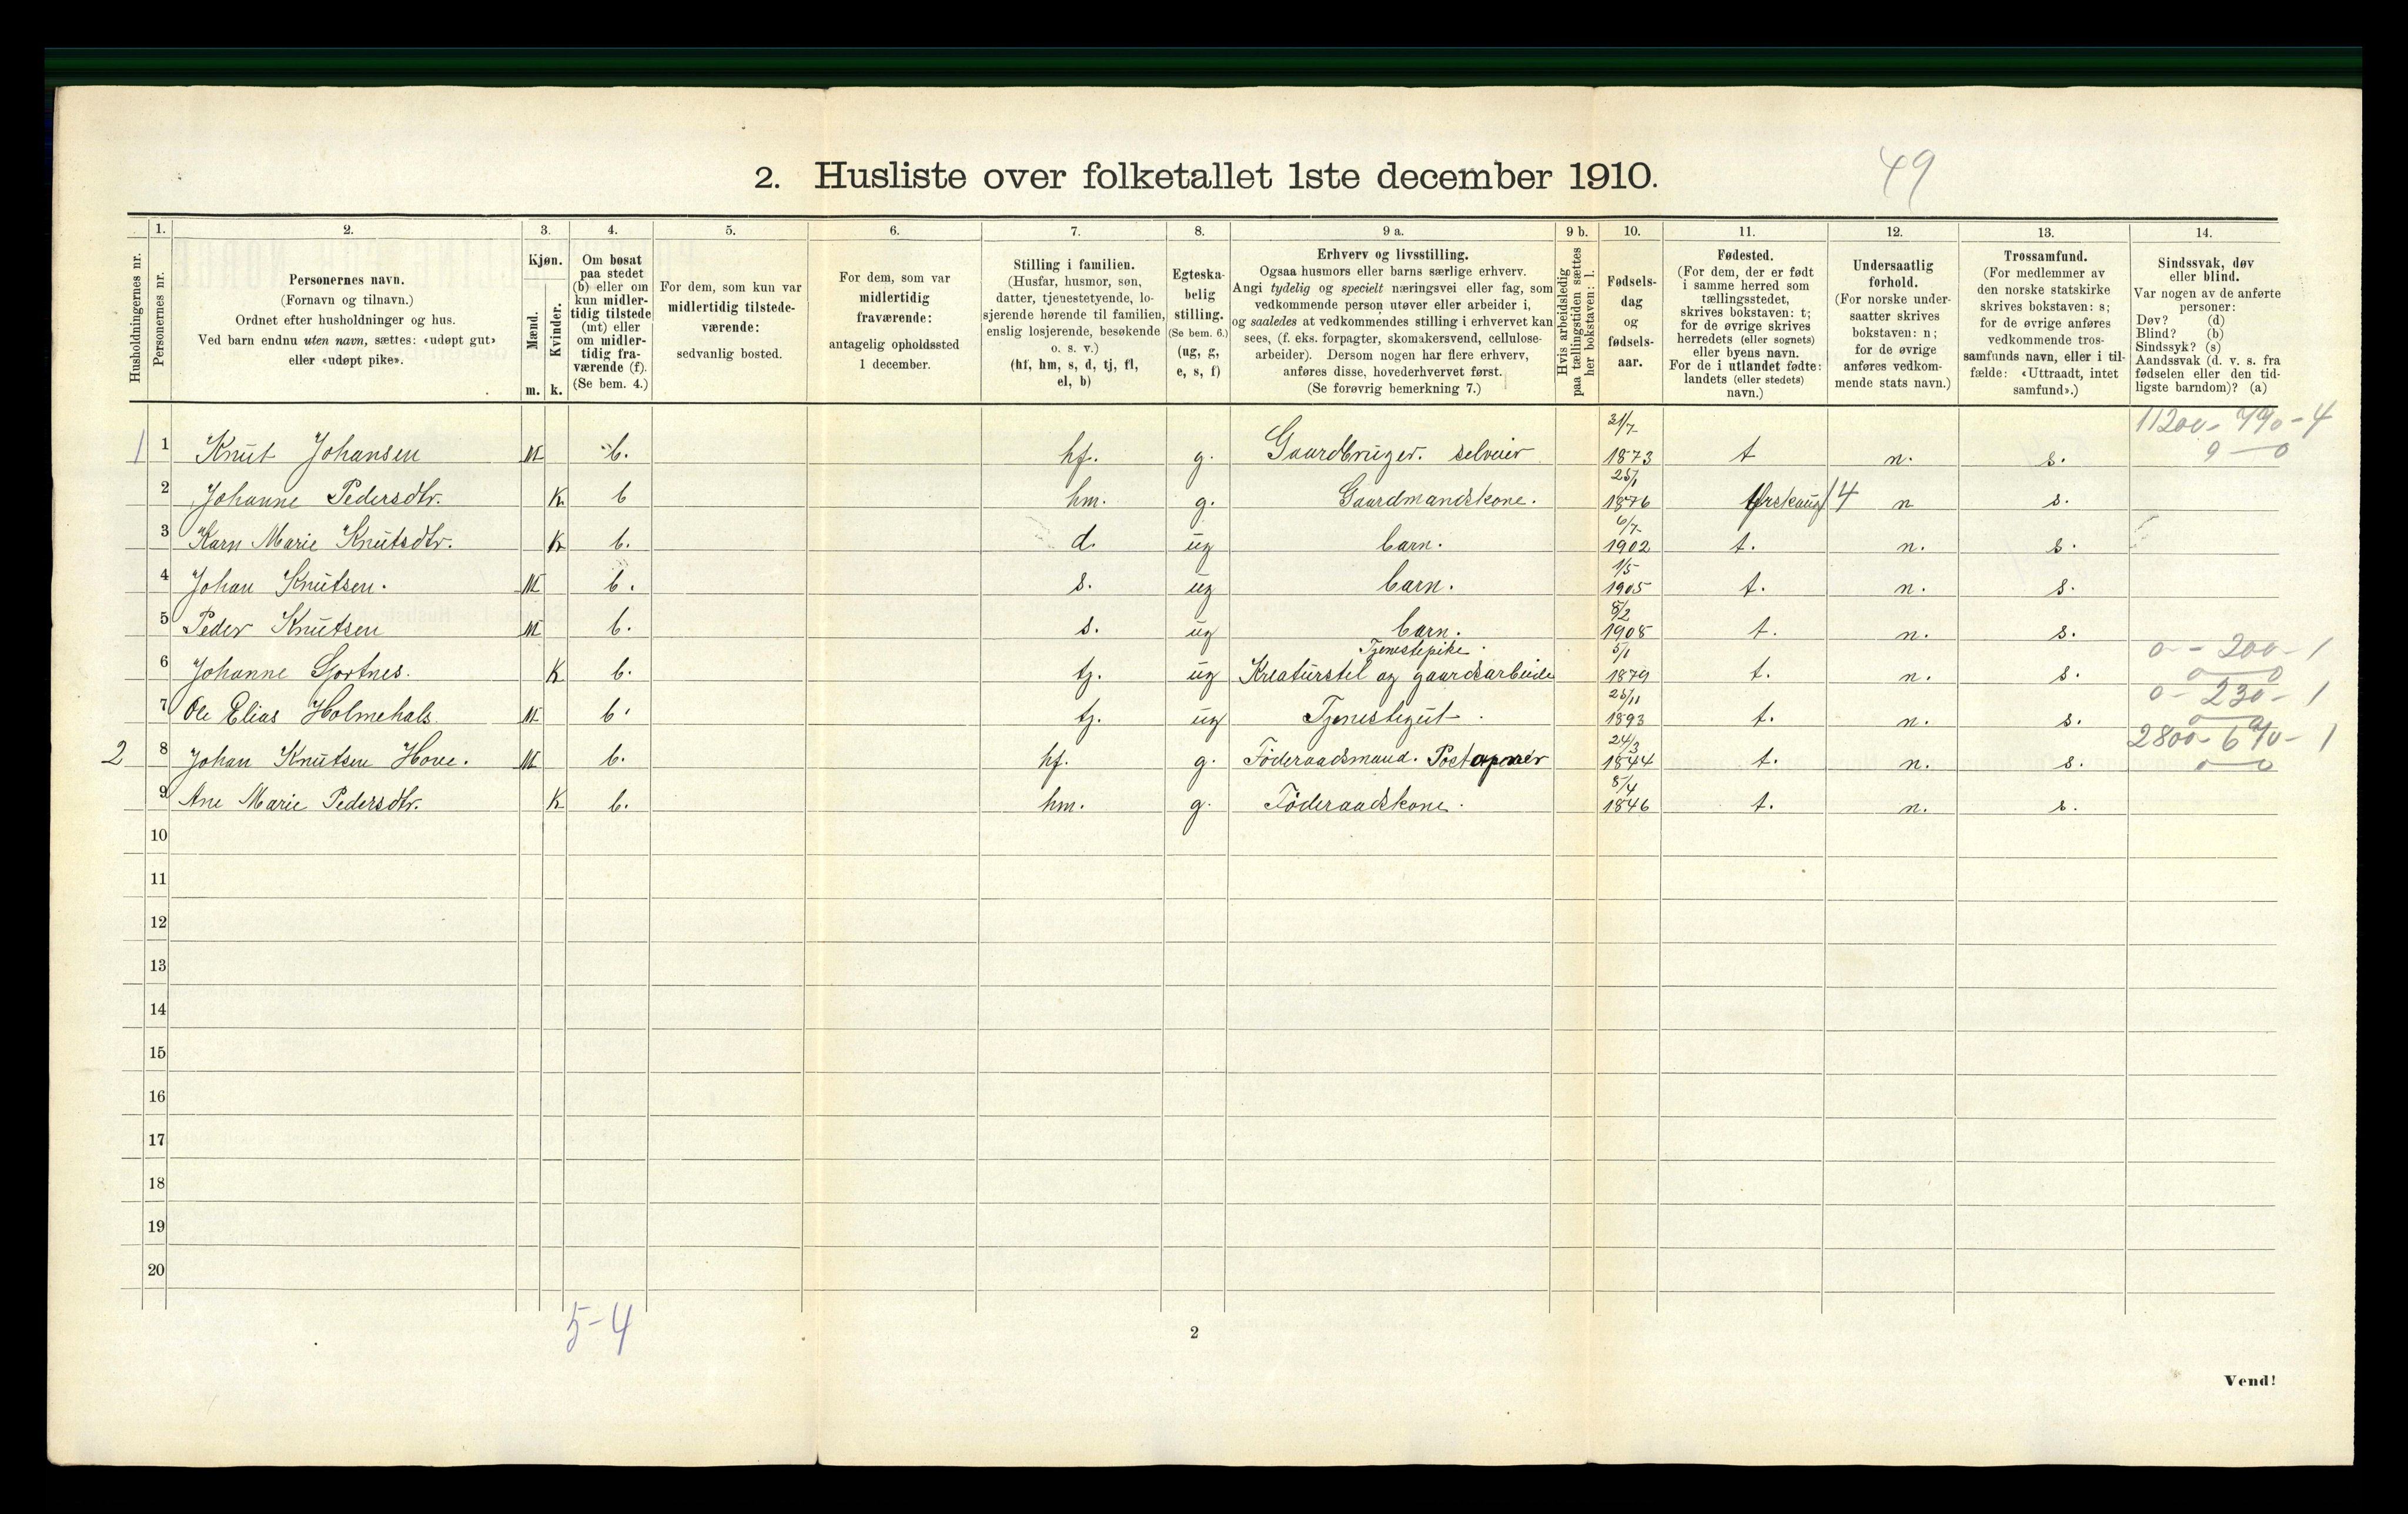 49
2. Husliste over folketallet 1ste december 1910.
1. 2. 3. 4. 5. 6. 7. 8. 9 a. 9 b. 10. 11. 12. 13. 14.
Husholdningernes nr.
Personernes nr.
Personernes navn.
(Fornavn og tilnavn.)
Ordnet efter husholdninger og hus.
Ved barn endnu uten navn, sættes: «udøpt gut»
eller «udøpt pike».
Kjøn.
Mænd.
Kvinder.
m. k.
Om bosat
paa stedet
(b) eller om
kun midler-
tidig tilstede
(mt) eller
om midler-
tidig fra-
værende (f).
(Se bem. 4.)
For dem, som kun var
midlertidig tilstede-
værende:
sedvanlig bosted.
For dem, som var
midlertidig
fraværende:
antagelig opholdssted
1 december.
Stilling i familien.
(Husfar, husmor, søn,
datter, tjenestetyende, lo-
sjerende hørende til familien,
enslig losjerende, besøkende
o. s. v.)
(hf, hm, s, d, tj, fl,
el, b)
Egteska-
belig
stilling.
(Se bem. 6.)
(ug, g,
e, s, f)
Erhverv og livsstilling.
Ogsaa husmors eller barns særlige erhverv.
Angi tydelig og specielt næringsvei eller fag, som
vedkommende person utøver eller arbeider i,
og saaledes at vedkommendes stilling i erhvervet kan
sees, (f. eks. forpagter, skomakersvend, cellulose-
arbeider). Dersom nogen har flere erhverv,
anføres disse, hovederhvervet først.
(Se forøvrig bemerkning 7.)
Hvis arbeidsledig
paa tællingstiden sættes
her bokstaven: l.
Fødsels-
dag
og
fødsels-
aar.
Fødested.
(For dem, der er født
i samme herred som
tællingsstedet,
skrives bokstaven: t;
for de øvrige skrives
herredets (eller sognets)
eller byens navn.
For de i utlandet fødte:
landets (eller stedets)
navn.)
Undersaatlig
forhold.
(For norske under-
saatter skrives
bokstaven: n;
for de øvrige
anføres vedkom-
mende stats navn.)
Trossamfund.
(For medlemmer av
den norske statskirke
skrives bokstaven: s;
for de øvrige anføres
vedkommende tros-
samfunds navn, eller i til-
fælde: «Uttraadt, intet
samfund».)
Sindssvak, døv
eller blind.
Var nogen av de anførte
personer:
Døv? (d)
Blind? (b)
Sindssyk? (s)
Aandssvak (d. v. s. fra
fødselen eller den tid-
ligste barndom)? (a)
1 1 Knut Johansen M b. hf. g. Gaardbruger. selveier 31/7 1873 t n. s. 1200-490-4
2 Johanne Pedersdtr. K b hm. g. Gaardmandskone. 25/1 1876 Ørskaug 4 n s.
3 Karn Marie Knutsdtr. K b. d. ug barn. 6/7 1902 t. n. s.
4 Johan Knutsen. M b. s. ug barn. 1/5 1905 t. n. s.
5 Peder Knutsen M b. s. ug barn. 8/2 1908 t. n. s.
Tjenestepike.
6 Johanne Gjortnes. K b. tj. ug Kreaturstel og gaardsarbeide 5/1 1879 t. n. s. 0-200-1
7 Ole Elias Holmehals. M b. tj. ug Tjenestegut. 25/11 1893 t. n. s. 0-230-1
2 8 Johan Knutsen Hove. M b. hf. g. Föderaadsmand. Postapner 24/3 1844 t. n. s. 2800-690-1
9 Ane Marie Pedersdtr. K b. hm. g. Föderaadskone. 8/4 1846 t. n. s.
10
11
12
13
14
15
16
17
18
19
20
5-4
2
Vend!